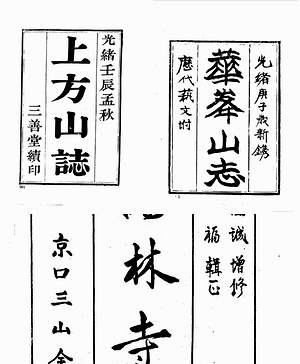 光緒壬辰孟秋
上方山誌
三善堂續印
光緒庚子歲新鐫
華峯山志
歷代藝文附
誠增修
福輯正
林寺
京口三山